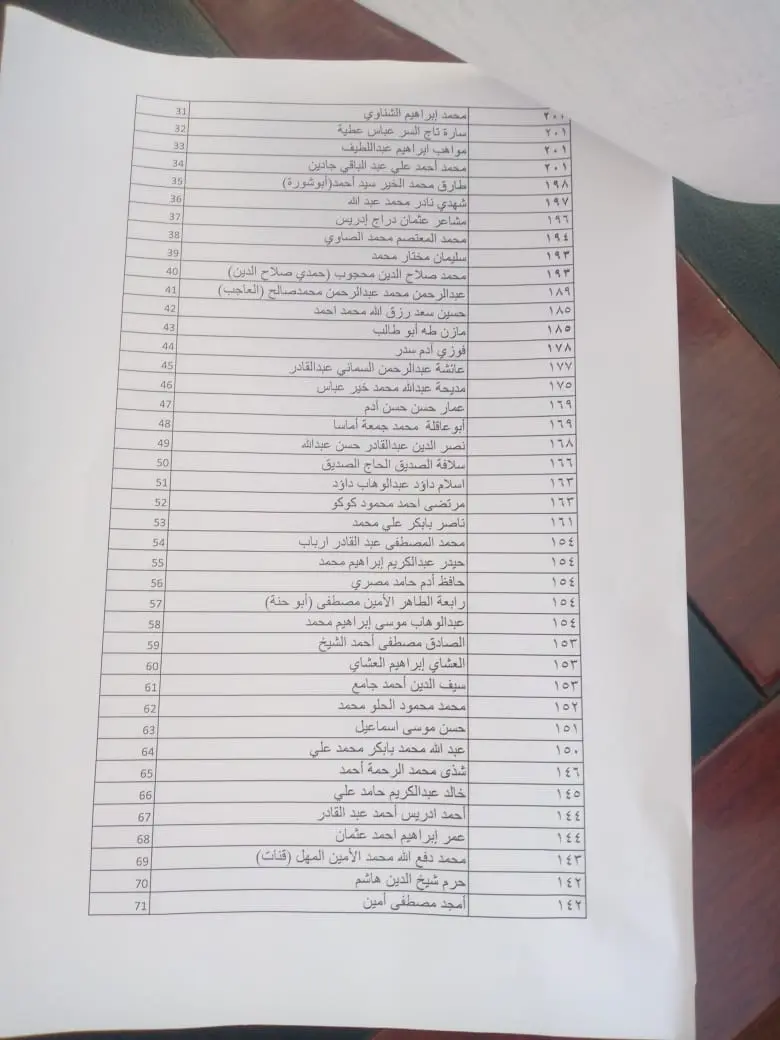 ٢٠١ محمد إبراهيم الشناوي 31
٢٠١ سارة تاج السر عباس عطية 32
٢٠١ مواهب ابراهيم عبداللطيف 33
٢٠١ محمد أحمد علي عبد الباقي جادين 34
١٩٨ طارق محمد الخير سيد أحمد(أبوشورة) 35
١٩٧ شهدي نادر محمد عبد الله 36
١٩٦ مشاعر عثمان دراج إدريس 37
١٩٤ محمد المعتصم محمد الصاوي 38
١٩٣ سليمان مختار محمد 39
١٩٣ محمد صلاح الدين محجوب (حمدي صلاح الدين) 40
١٨٩ عبدالرحمن محمد عبدالرحمن محمدصالح (العاجب) 41
١٨٥ حسين سعد رزق الله محمد احمد 42
١٨٥ مازن طه أبو طالب 43
١٧٨ فوزي أدم سدر 44
١٧٧ عائشة عبدالرحمن السماني عبدالقادر 45
١٧٥ مديحة عبدالله محمد خير عباس 46
١٦٩ عمار حسن حسن أدم 47
١٦٩ أبوعاقلة محمد جمعة أماسا 48
١٦٨ نصر الدين عبدالقادر حسن عبدالله 49
١٦٦ سلافة الصديق الحاج الصديق 50
١٦٣ اسلام داؤد عبدالوهاب داؤد 51
١٦٣ مرتضى احمد محمود كوكو 52
١٦١ ناصر بابكر علي محمد 53
١٥٤ محمد المصطفى عبد القادر ارباب 54
١٥٤ حيدر عبدالكريم إبراهيم محمد 55
١٥٤ حافظ أدم حامد مصري 56
١٥٤ رابعة الطاهر الأمين مصطفى (أبو حنة) 57
١٥٤ عبدالوهاب موسى إبراهيم محمد 58
١٥٣ الصادق مصطفى أحمد الشيخ 59
١٥٣ العشاي إبراهيم العشاي 60
١٥٣ سيف الدين أحمد جامع 61
١٥٢ محمد محمود الحلو محمد 62
١٥١ حسن موسى اسماعيل 63
١٥٠ عبد الله محمد بابكر محمد علي 64
١٤٦ شذى محمد الرحمة أحمد 65
١٤٥ خالد عبدالكريم حامد علي 66
١٤٤ أحمد ادريس أحمد عبد القادر 67
١٤٤ عمر إبراهيم احمد عثمان 68
١٤٣ محمد دفع الله محمد الأمين المهل (قنات) 69
١٤٢ حرم شيخ الدين هاشم 70
١٤٢ أمجد مصطفى أمين 71